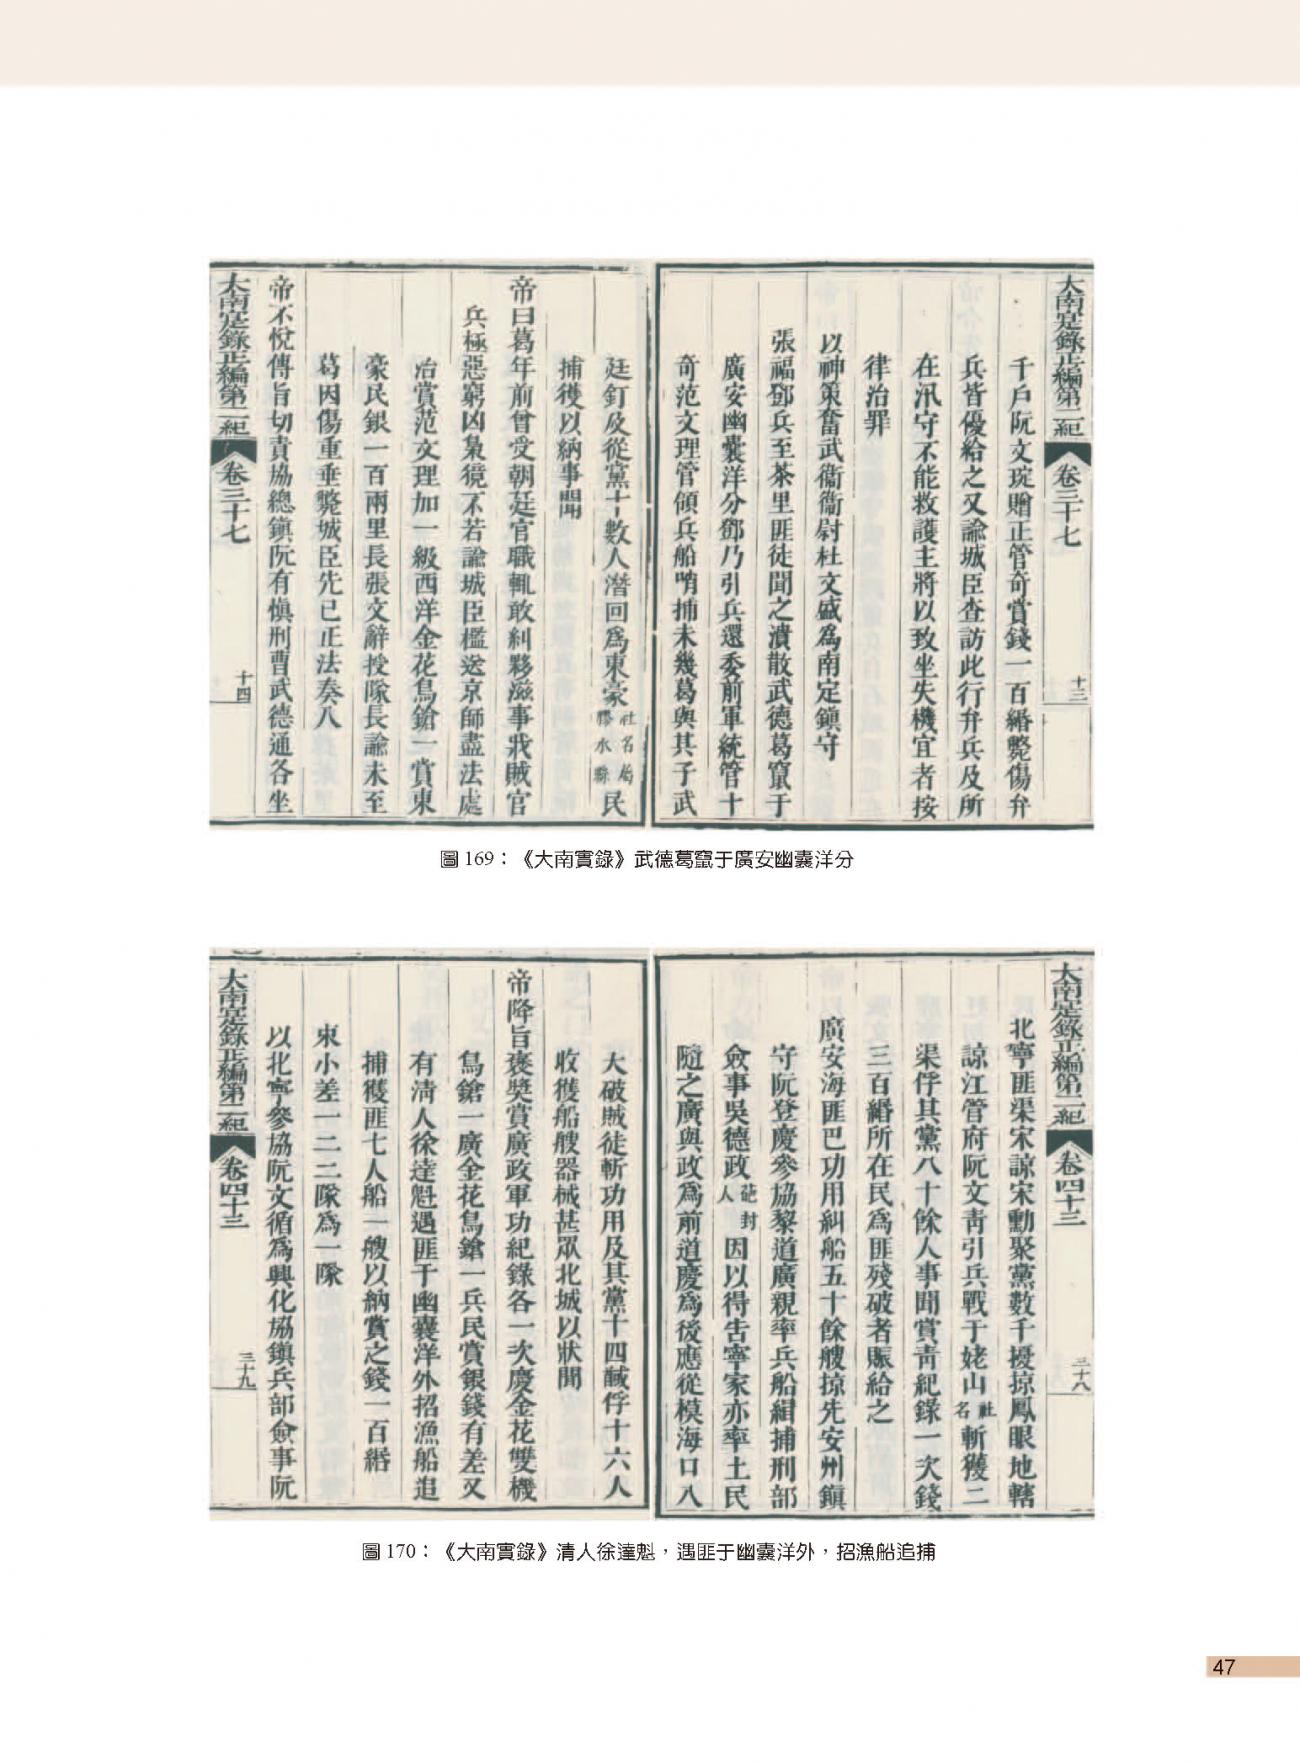 大南寔錄正編第二紀 卷三十七 十三
千戶阮文琔贈正管奇賞錢一百緡斃傷弁
兵皆優給之又諭城臣查訪此行弁兵及所
在汛守不能救護主將以致坐失機宜者按
律治罪
以神策奮武衞衞尉杜文盛爲南定鎮守
張福鄧兵至茶里匪徒聞之潰散武德葛竄于
廣安幽囊洋分鄧乃引兵還委前軍統管十
奇范文理管領兵船哨捕未幾葛與其子武
廷釘及從黨十數人潛回爲東豪社名屬膠水縣民
捕獲以納事聞
帝曰葛年前曾受朝廷官職輒敢糾夥滋事戕賊官
兵極惡窮凶梟獍不若諭城臣檻送京師盡法處
治賞范文理加一級西洋金花鳥鎗一賞東
豪民銀一百兩里長張文辭授隊長諭未至
葛因傷重垂斃城臣先已正法奏入
帝不悅傳旨切責協總鎮阮有慎刑曹武德通各坐
大南寔錄正編第二紀 卷三十七 十四
圖 169：《大南實錄》武德葛竄于廣安幽囊洋分
大南寔錄正編第二紀 卷四十三 三十八
北寧匪渠宋諒宋勳聚黨數千擾掠鳳眼地轄
諒江管府阮文靑引兵戰于姥山社名斬獲二
渠俘其黨八十餘人事聞賞靑紀錄一次錢
三百緡所在民爲匪殘破者賑給之
廣安海匪巴功用糾船五十餘艘掠先安州鎮
守阮登慶參協黎道廣親率兵船緝捕刑部
僉事吳德政葩封人因以得告寧家亦率土民
隨之廣與政爲前道慶爲後應從模海口入
大破賊徒斬功用及其黨十四馘俘十六人
收獲船艘器械甚眾北城以狀聞
帝降旨褒奬賞廣政軍功紀錄各一次慶金花雙機
鳥鎗一廣金花鳥鎗一兵民賞銀錢有差又
有淸人徐逹魁遇匪于幽囊洋外招漁船追
捕獲匪七人船一艘以納賞之錢一百緡
東小差一二二隊爲一隊
以北寧參協阮文循爲興化協鎮兵部僉事阮
大南寔錄正編第二紀 卷四十三 三十九
圖 170：《大南實錄》清人徐達魁，遇匪于幽囊洋外，招漁船追捕
47